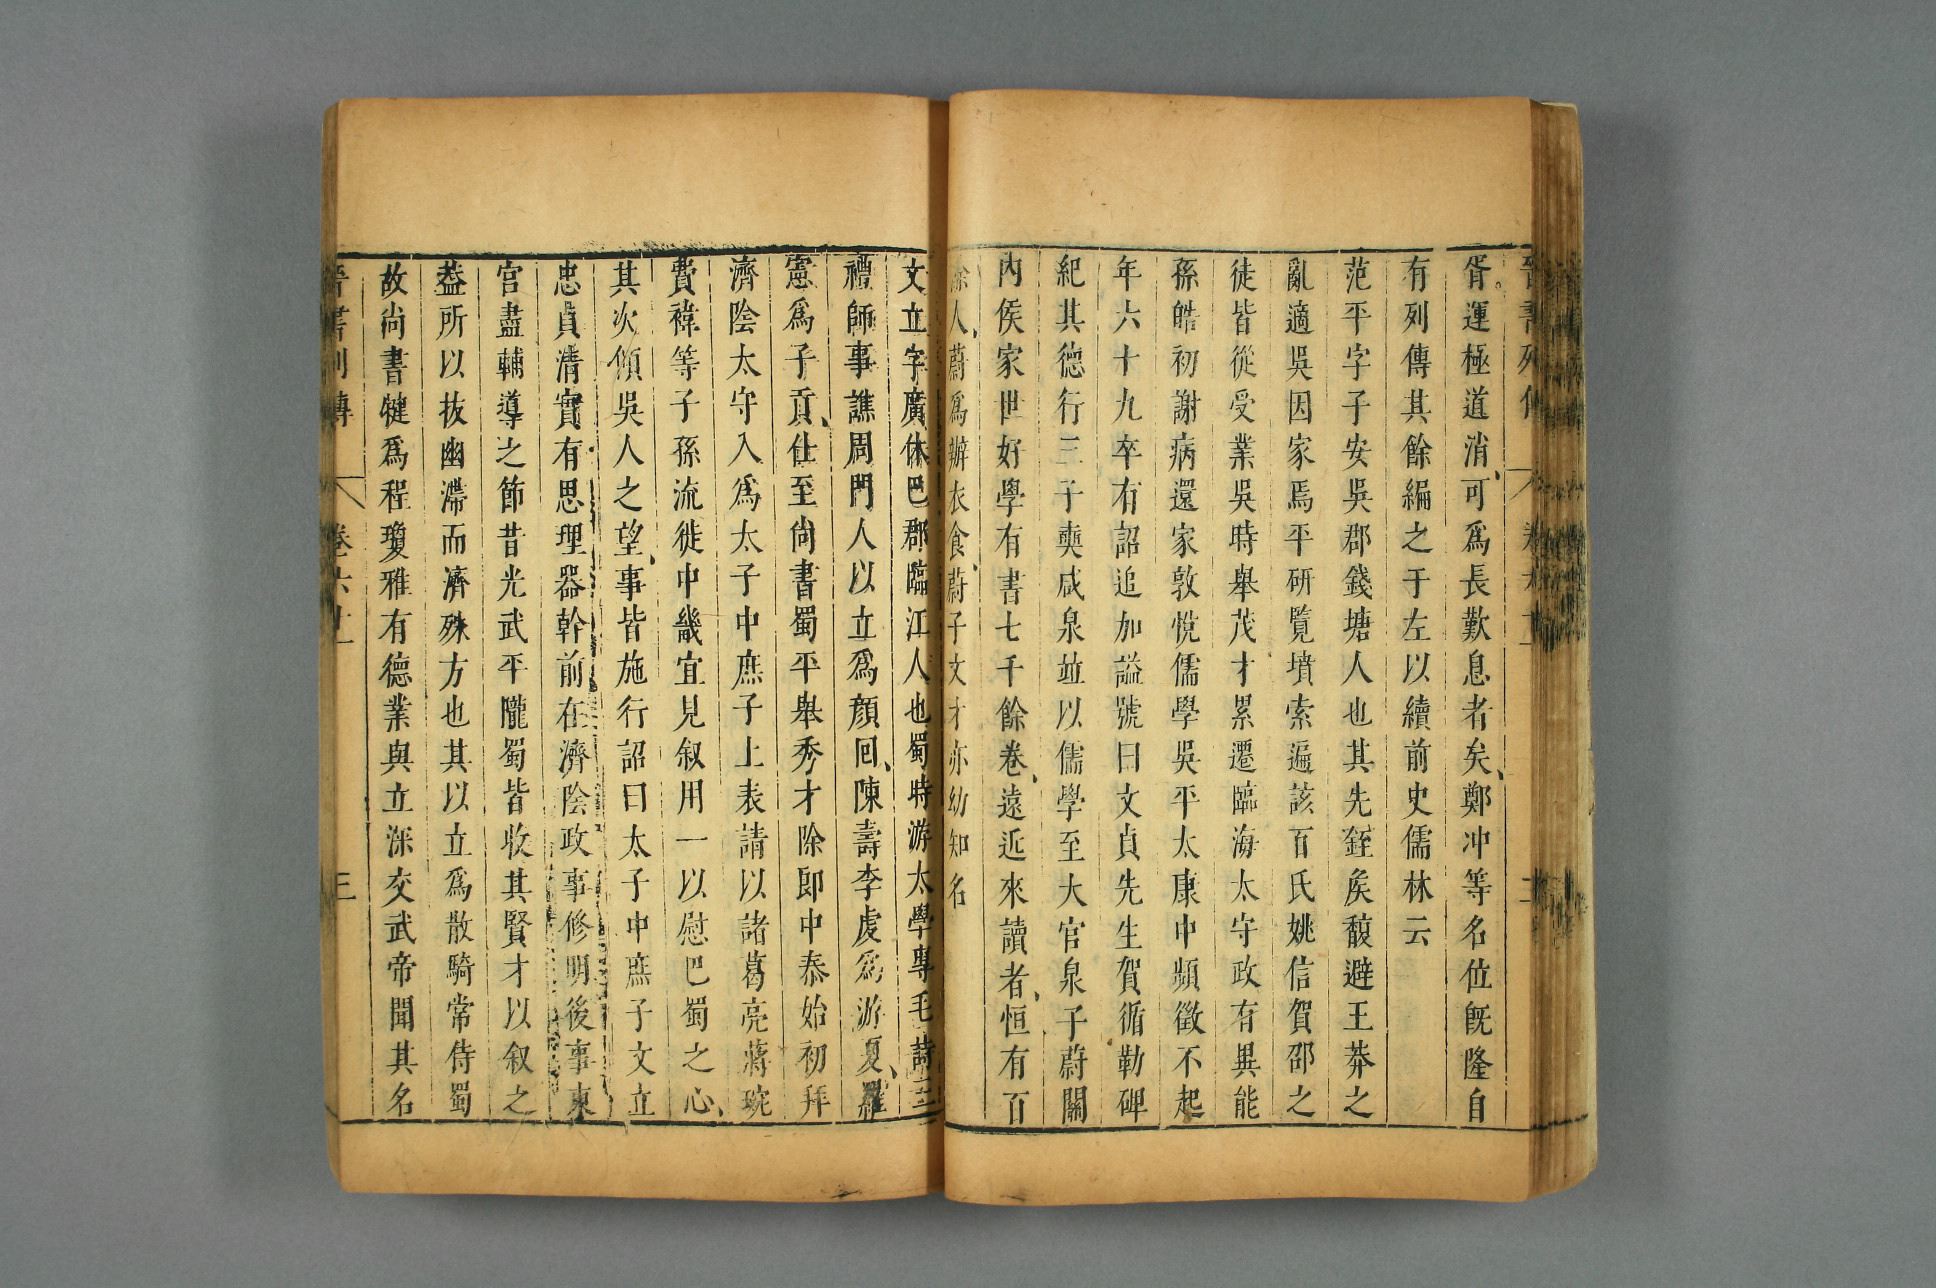 晉書列傳 卷六十一 三
胥運極道消可爲長歎息者矣鄭沖等名位旣隆自
有列傳其餘編之于左以續前史儒林云
范平字子安吳郡錢塘人也其先銍矦馥避王莽之
亂適吳因家焉平研覽墳索遍該百氏姚信賀邵之
徒皆從受業吳時舉茂才累遷臨海太守政有異能
孫皓初謝病還家敦悅儒學吳平太康中頻徵不起
年六十九卒有詔追加謚號曰文貞先生賀循勒碑
紀其德行三子奭咸泉竝以儒學至大官泉子蔚關
內侯家世好學有書七千餘卷遠近來讀者恒有百
餘人蔚爲辦衣食蔚子文才亦幼知名
文立字廣休巴郡臨江人也蜀時游太學專毛詩三
禮師事譙周門人以立爲顏回陳壽李虔爲游夏羅
憲爲子貢仕至尚書蜀平舉秀才除郎中泰始初拜
濟陰太守入爲太子中庶子上表請以諸葛亮蔣琬
費褘等子孫流徙中畿宜見叙用一以慰巴蜀之心
其次傾吳人之望事皆施行詔曰太子中庶子文立
忠貞清實有思理器幹前在濟陰政事修明後事東
宮盡輔導之節昔光武平隴蜀皆收其賢才以叙之
葢所以拔幽滯而濟殊方也其以立爲散騎常侍蜀
故尚書犍爲程瓊雅有德業與立深交武帝聞其名
晉書列傳 卷六十一 三